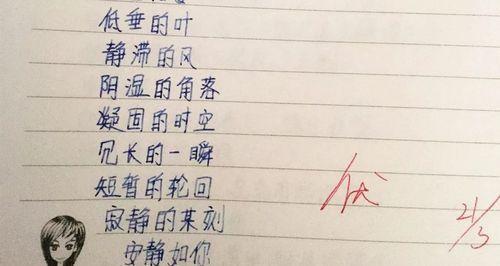 低垂的叶
静滞的风
阴湿的角落
凝固的时空
冗长的一瞬
短暂的轮回
寂静的某刻
安静如你
优
21/3